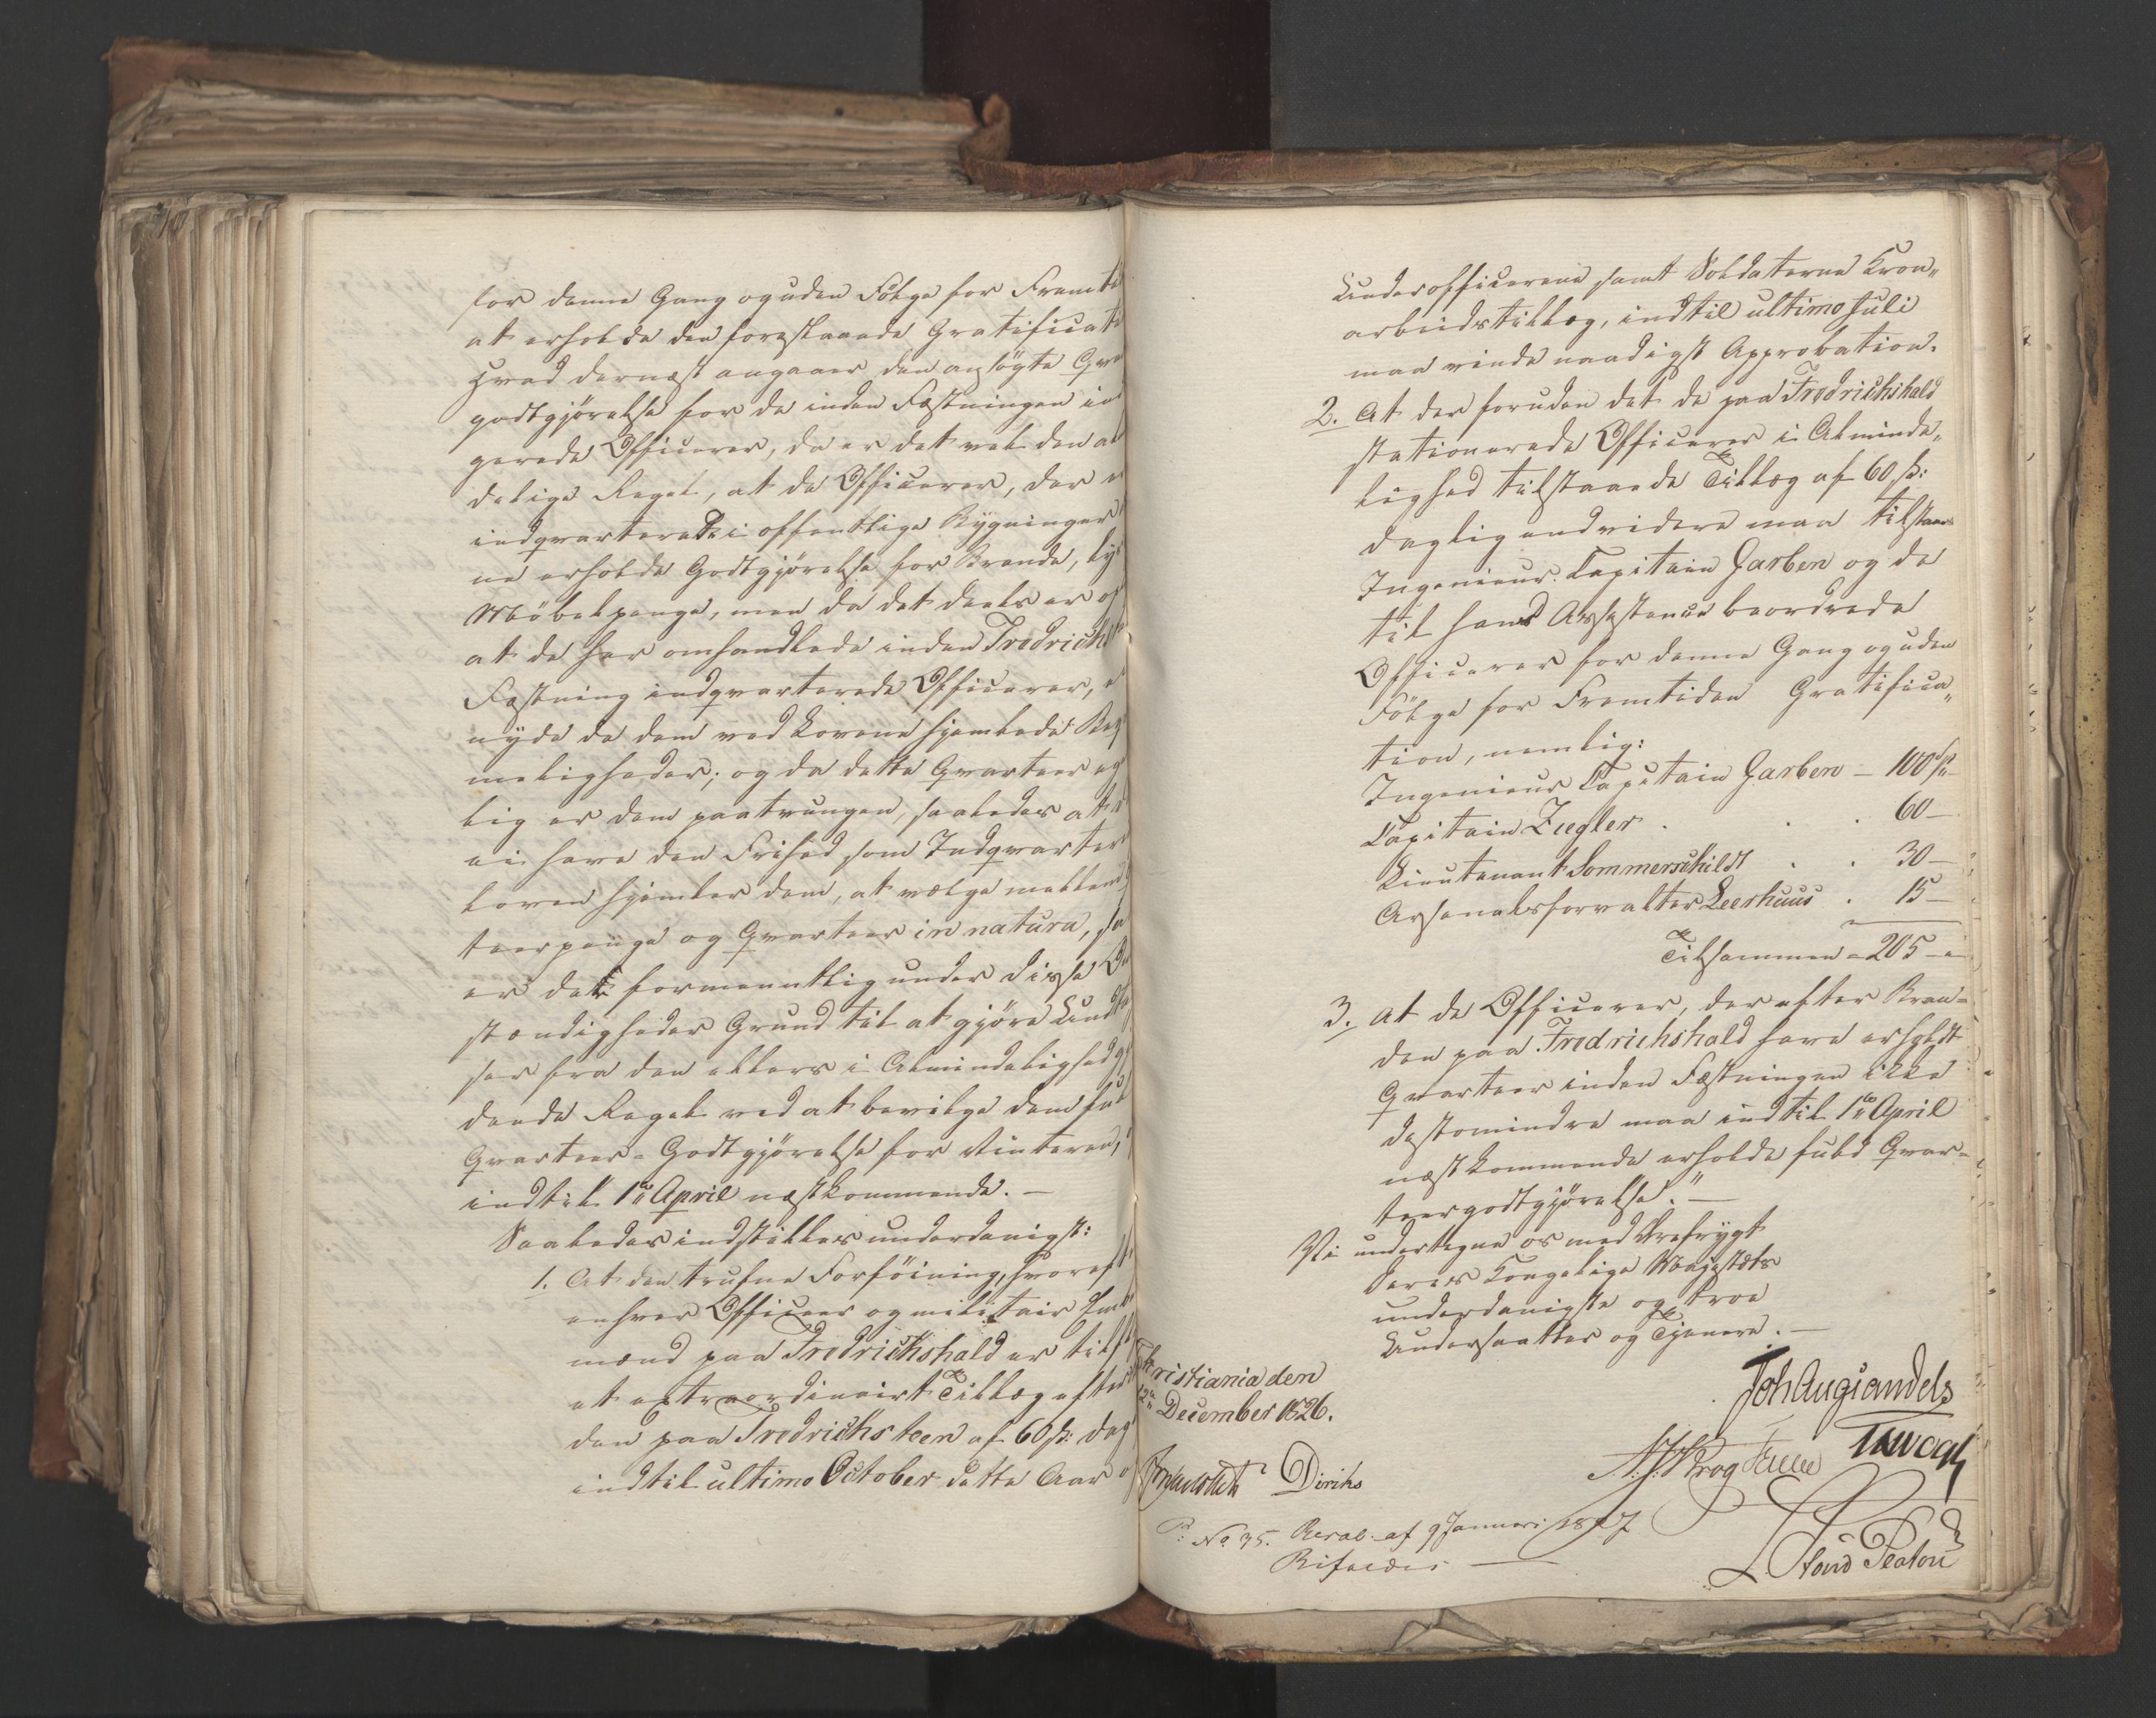 for denne Gang og uden Fölge for Fremti
at erholde den foreslaaede Gratificati
Hvad dernæst angaaer den ansögte Qva
godtgjörelse for de inden Fæstningen ind
gerede Officerer, da er det vel den al
delige Regel, at de Officerer, der e
indqvarterede i offentlige Bygninger
ne erholde Godtgjörelse for Brænde, Lys
Möbelpenge, men da det deels er
at de her omhandlede inden Fredrichs
Fæstning indqvarterede Officerer,
nyde de dem ved Lovene hjemlede Beq
meligheder; og da dette Qvarteer eg
lig er dem paatvungen, saaledes at
ei have den Frihed som Indqvarter
loven hjemler dem, at vælge mellem
teerpenge og Qvarteer in natura, sa
er det formeentlig under disse O
stændigheder Grund til at gjöre Und
ser fra den ellers i Almindelighed g
dende Regel ved at bevilge dem ful
Qvarteer-Godtgjörelse for Vinteren,
indtil 1ste April næstkommende. —
Saaledes indstilles underdanigst:
1. At den trufne Forföining, hvoreft
enhver Officeer og militair Emb
mænd paa Fredrichshald er tilst
et extraordinairt Tillæg efter
den paa Fredrichsteen af 60 s: dag
indtil ultimo October dette Aar o
Underofficerene samt Soldaterne Kron„
arbeidstillæg, indtil ultimo Juli
maa vinde naadigst Approbation.
2. At der foruden det de paa Fredrichshald
stationerede Officerer i Alminde„
lighed tilstaaede Tillæg af 60 s:
daglig endvidere maa tilstaaes
Ingenieur Capitain Garben og de
til hans Assistence beordrede
Officerer for denne Gang og uden
Fölge for Fremtiden Gratifica„
tion, nemlig:
Ingenieur Capitain Garben — 100 Sp
Capitain Ziegler . . . 60 —
Lieutenant Sommerschildt . . 30 —
Arsenalsforvalter Leerhuus . 15 —
Tilsammen = 205 —
3. At de Officerer, der efter Bran=
den paa Fredrichshald have erholdt
Qvarteer inden Fæstningen ikke
destomindre maa indtil 1ste April
næstkommende erholde fuld Qvar=
teergodtgjörelse." —
Vi undertegne os med Ærefrygt
Deres Kongelige Majestæts
underdanigste og troe
Undersaatter og Tjenere. —
Christiania den
12te December 1826.
Joh Aug Sandels
Diriks
N. J. Krog
No 35. Resol. af 9 Januari 1827
Bifaldes —